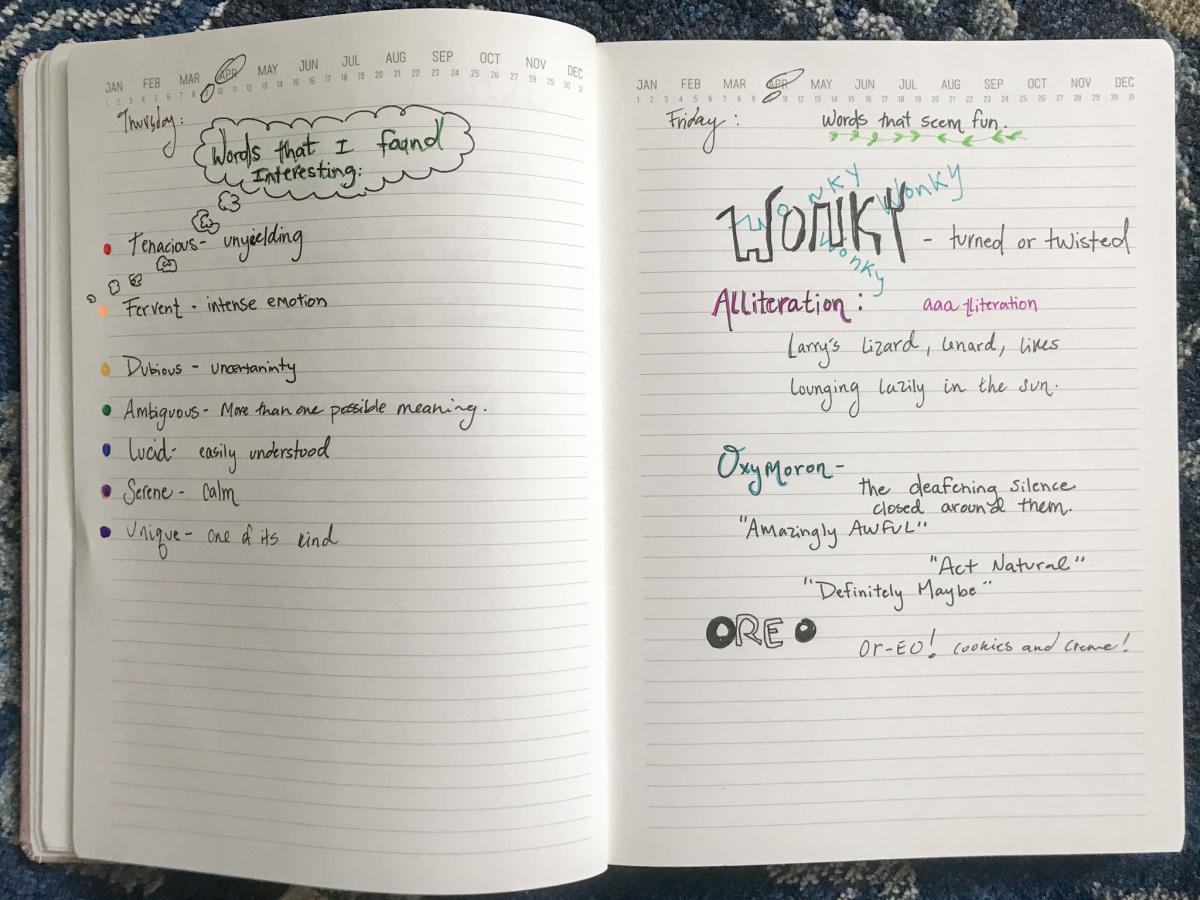 JAN FEB MAR APR MAY JUN JUL AUG SEP OCT NOV DEC
1 2 3 4 5 6 7 8 9 10 11 12 13 14 15 16 17 18 19 20 21 22 23 24 25 26 27 28 29 30 31
Thursday:
Words that I found
Interesting:
Tenacious- unyielding
Fervent - intense emotion
Dubious - uncertaninty
Ambiguous - More than one possible meaning.
Lucid- easily understood
Serene - Calm
Unique - one of its kind
JAN FEB MAR APR MAY JUN JUL AUG SEP OCT NOV DEC
1 2 3 4 5 6 7 8 9 10 11 12 13 14 15 16 17 18 19 20 21 22 23 24 25 26 27 28 29 30 31
Friday: Words that seem fun.
Wonky Wonky
WONKY - turned or twisted
Wonky
Alliteration: aaa-lliteration
Larry's lizard, Lenard, likes
lounging lazily in the sun.
Oxymoron-
the deafening silence
closed around them.
"Amazingly AWFUL"
"Act Natural"
"Definitely Maybe"
OREO
Or-EO! cookies and creme!